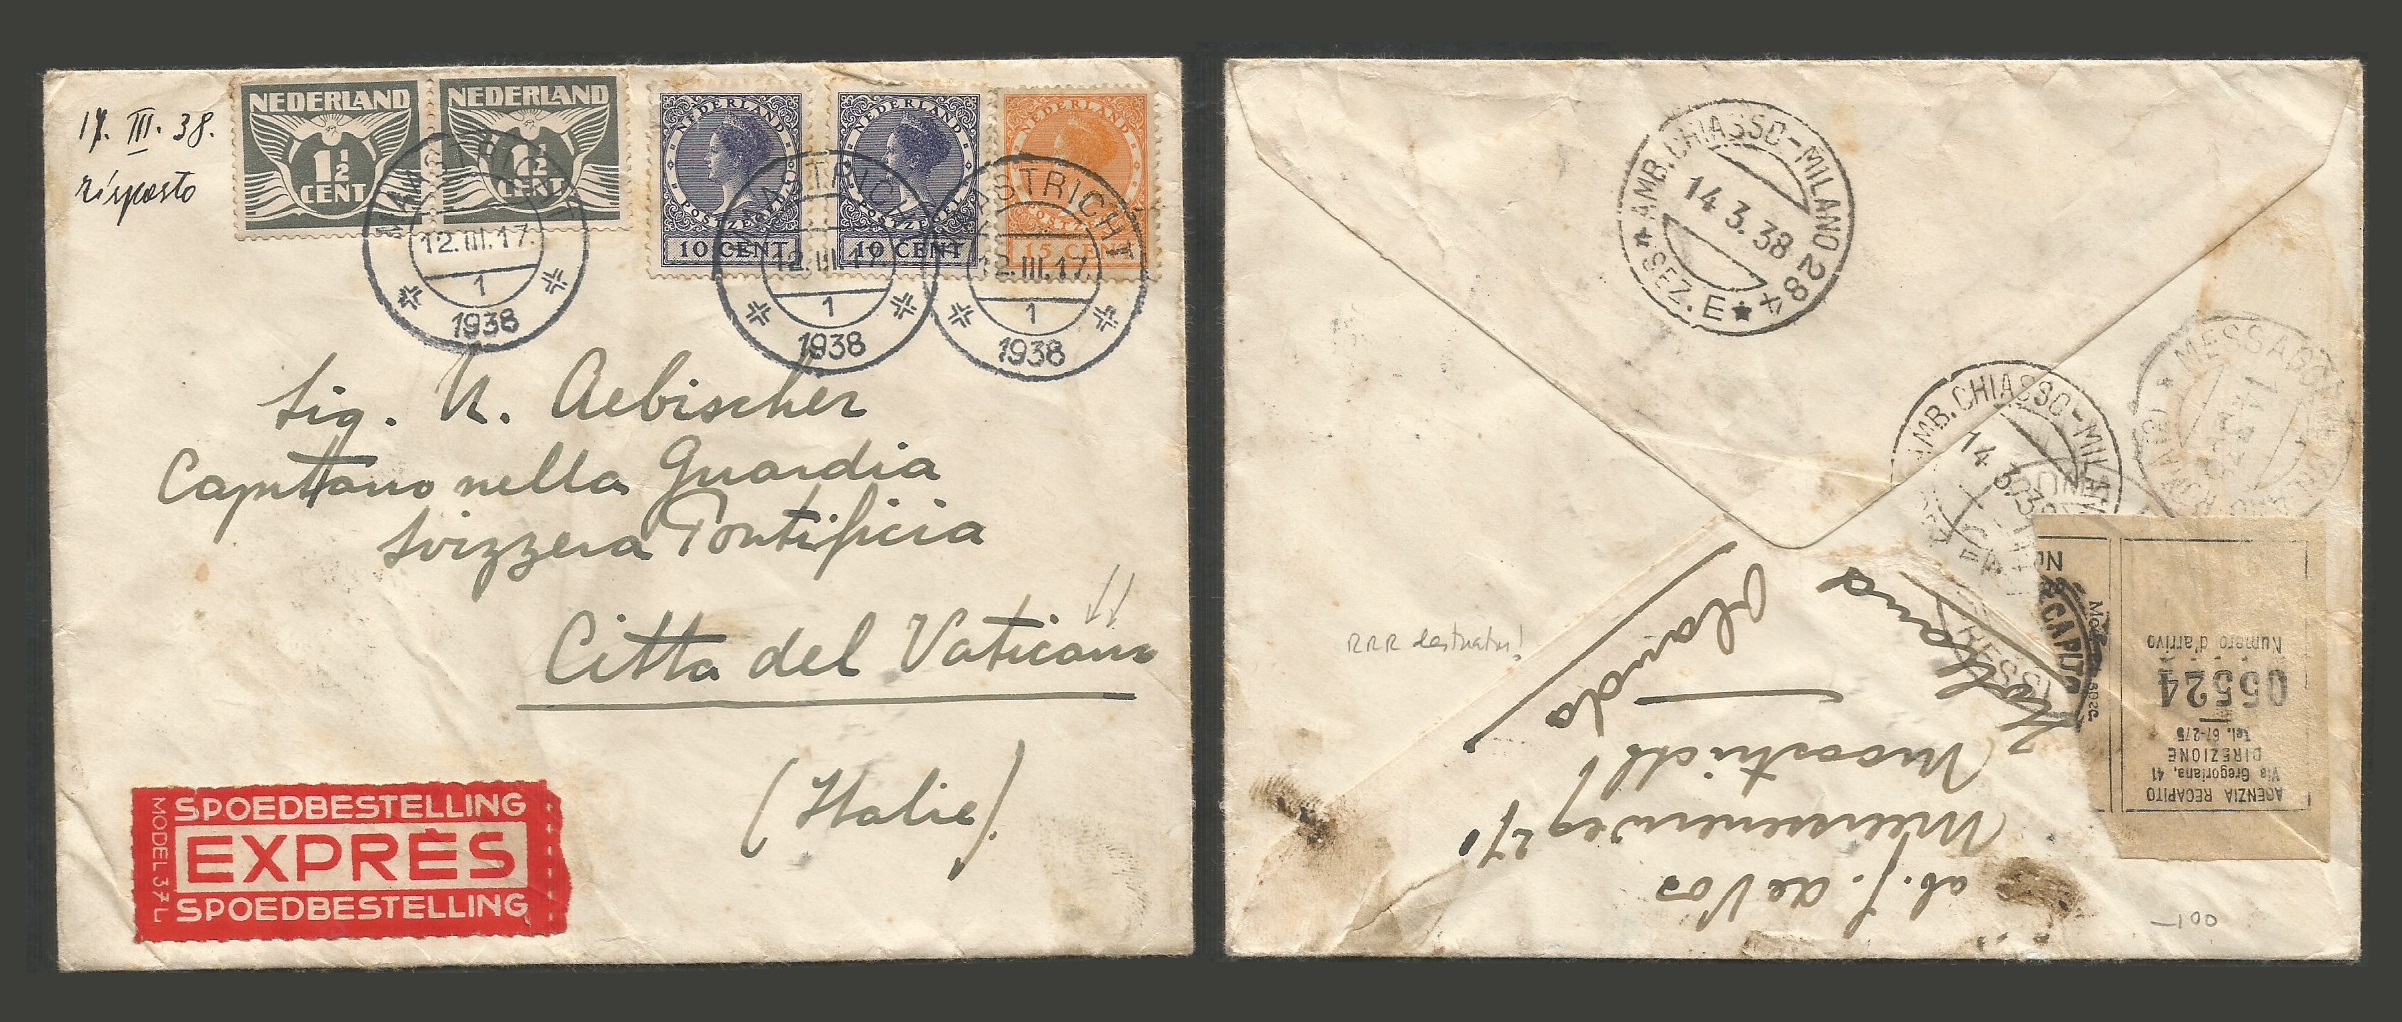 17. III. 38.
risposto
NEDERLAND
1½
CENT
NEDERLAND
1½
CENT
NEDERLAND
POSTZEGEL
10 CENT
NEDERLAND
POSTZEGEL
10 CENT
NEDERLAND
POSTZEGEL
15 CENT
MAASTRICHT
12.III.17.
1
1938
MAASTRICHT
12.III.17.
1
1938
MAASTRICHT
12.III.17.
1
1938
Sig. U. Aebischer
Capitano nella Guardia
Svizzera Pontificia
Citta del Vaticano
(Italie).
MODEL 37 L
SPOEDBESTELLING
EXPRÈS
SPOEDBESTELLING
AMB. CHIASSO-MILANO 284
14 3.38
* SEZ. E *
AMB. CHIASSO-MILANO
14 3 38
MESSAGG
RRR
ab. J. de Vos
Meerssenerweg 270
Maastricht
Holland
Olanda
AGENZIA RECAPITO
Via Gregoriana, 41
DIREZIONE
Tel. 67-275
05524
Numero d'arrivo
RECAPITO
100